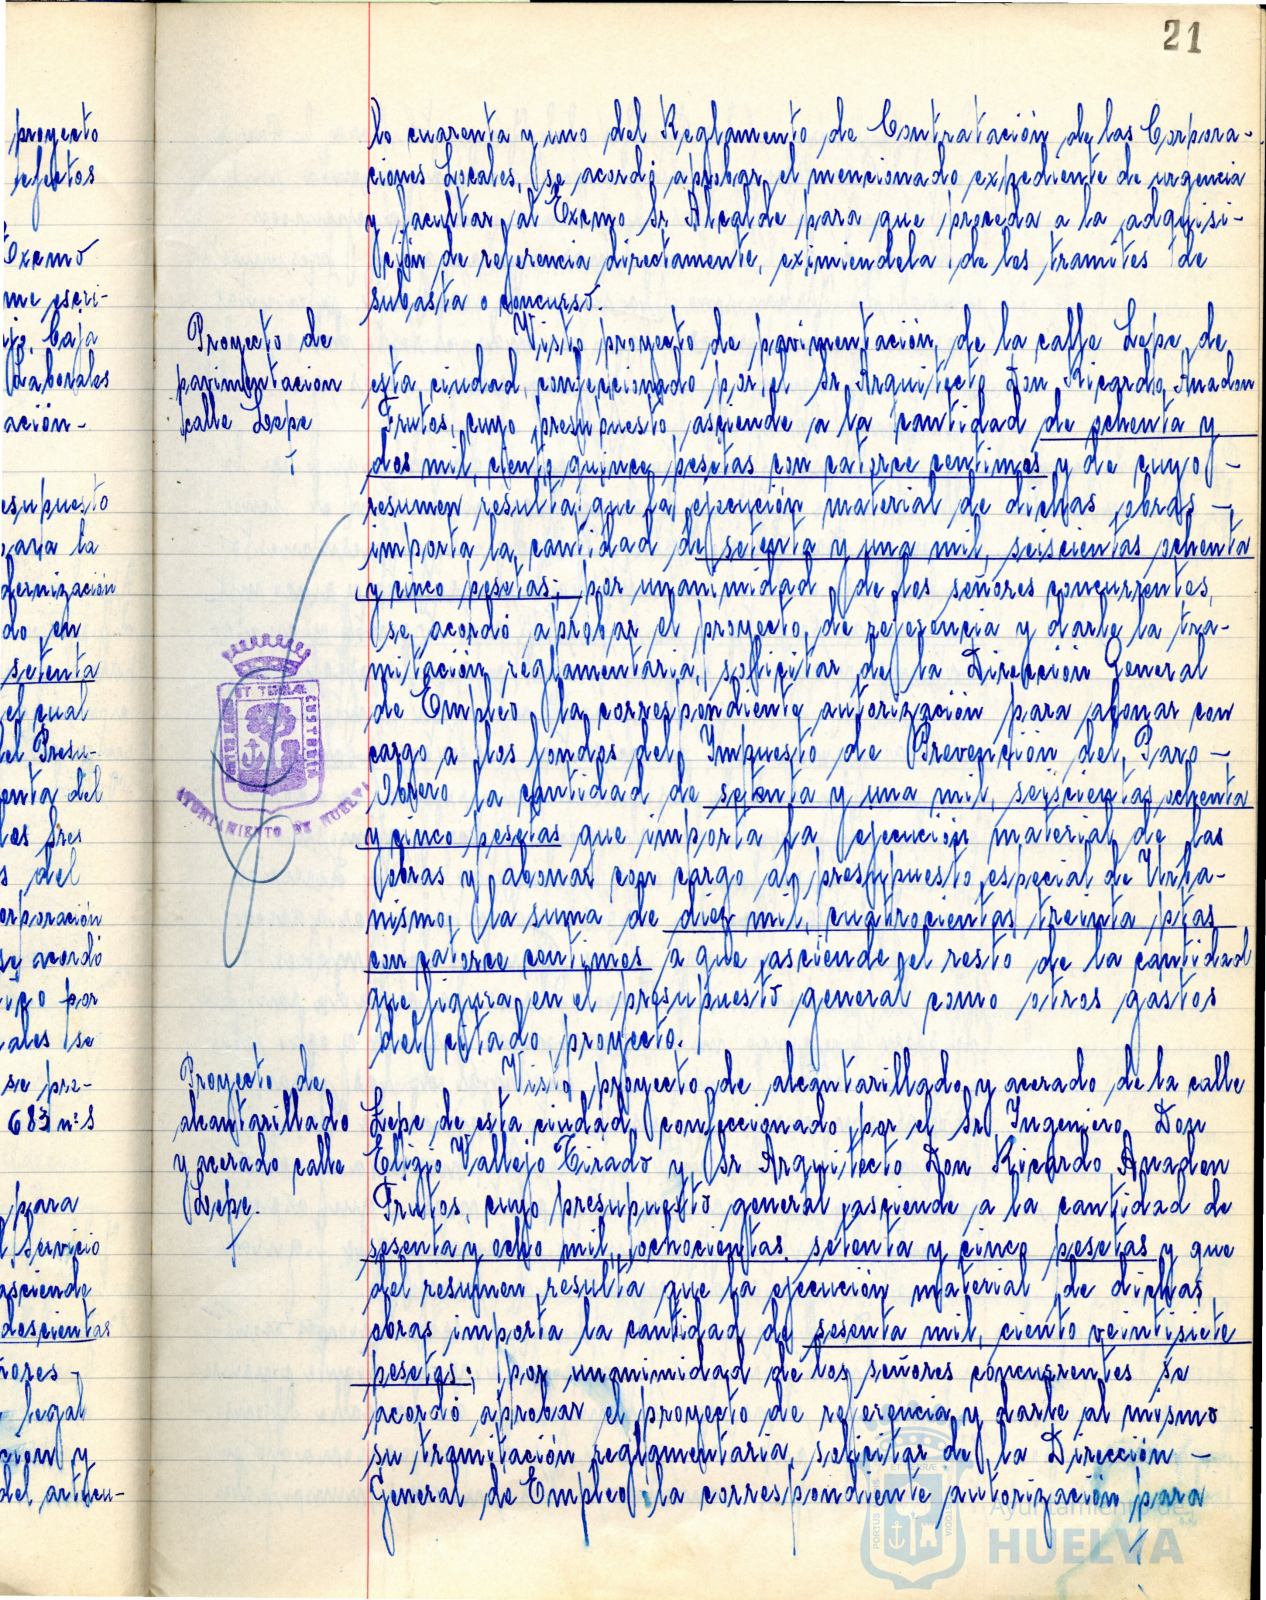 21
proyecto
efectos
Excmo
me escri-
baja
Laborales
ación-
esupuesto
para la
dernización
do en
setenta
el cual
el Presu-
enta del
les Sres
s del
orporación
se acordó
ico por
ales se
se pre-
683 nº 8
para
l Servicio
asciende
doscientas
ñores-
legal
ción y
del artícu-
lo cuarenta y uno del Reglamento de Contratación de las Corpora-
ciones Locales, se acordó aprobar el mencionado expediente de urgencia
y facultar al Excmo Sr Alcalde para que proceda a la adquisi-
ción de referencia directamente, eximiendela de los tramites de
subasta o concurso.
Proyecto de
pavimentación
calle Lepe
Visto proyecto de pavimentación de la calle Lepe de
esta ciudad, confeccionado por el Sr Arquitecto Don Ricardo Anadon
Frutos, cuyo presupuesto asciende a la cantidad de ochenta y
dos mil, ciento quince pesetas con catorce centimos y de cuyo-
resumen resulta que la ejecución material de dichas obras-
importa la cantidad de setenta y una mil, seiscientas ochenta
y cinco pesetas; por unanimidad de los señores concurrentes,
se acordó aprobar el proyecto de referencia y darle la tra-
mitación reglamentaria, solicitar de la Dirección General
de Empleo la correspondiente autorización para abonar con
cargo a los fondos del Impuesto de Prevención del Paro-
Obrero la cantidad de setenta y una mil, seiscientas ochenta
y cinco pesetas que importa la ejecución material de las
obras y abonar con cargo al presupuesto especial de Urba-
nismo, la suma de diez mil, cuatrocientas treinta ptas
con catorce centimos a que asciende el resto de la cantidad
que figura en el presupuesto general como otros gastos
del citado proyecto.
ET TERRAE
CUSTODIA
AYUNTAMIENTO DE HUELVA
Proyecto de
alcantarillado
y acerado calle
Lepe.
Visto proyecto de alcantarillado y acerado de la calle
Lepe de esta ciudad, confeccionado por el Sr Ingeniero Don
Eligio Vallejo Tirado y Sr Arquitecto Don Ricardo Anadon
Frutos, cuyo presupuesto general asciende a la cantidad de
sesenta y ocho mil, ochocientas setenta y cinco pesetas y que
del resumen resulta que la ejecución material de dichas
obras importa la cantidad de sesenta mil, ciento veintisiete
pesetas; por unanimidad de los señores concurrentes se
acordó aprobar el proyecto de referencia y darle al mismo
su tramitación reglamentaria, solicitar de la Dirección-
General de Empleo la correspondiente autorización para
Ayuntamiento de
HUELVA